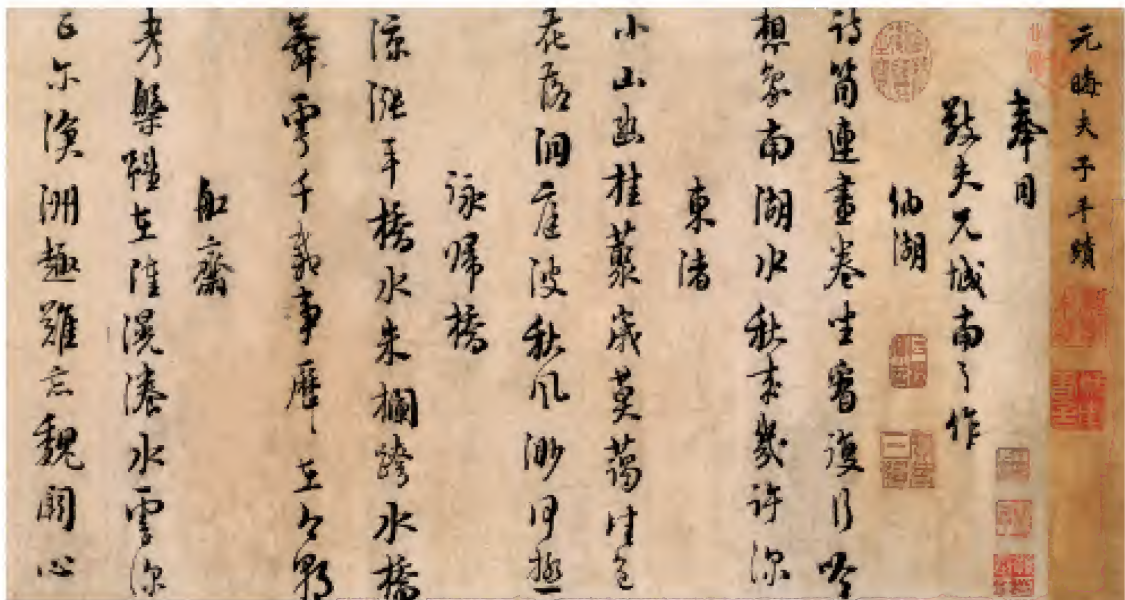 元晦夫子手績
奉同
敬夫兄城南之作
納湖
詩筒連畫卷坐看復行吟
想象南湖水秋來幾許深
東渚
小山幽桂叢歲莫藹佳色
花落洞庭波秋風渺何極
詠歸橋
綠漲平橋水朱欄跨水橋
舞雩千載事歷歷在今朝
船齋
考槃雖在陸滉瀁水雲深
正爾滄洲趣難忘魏闕心